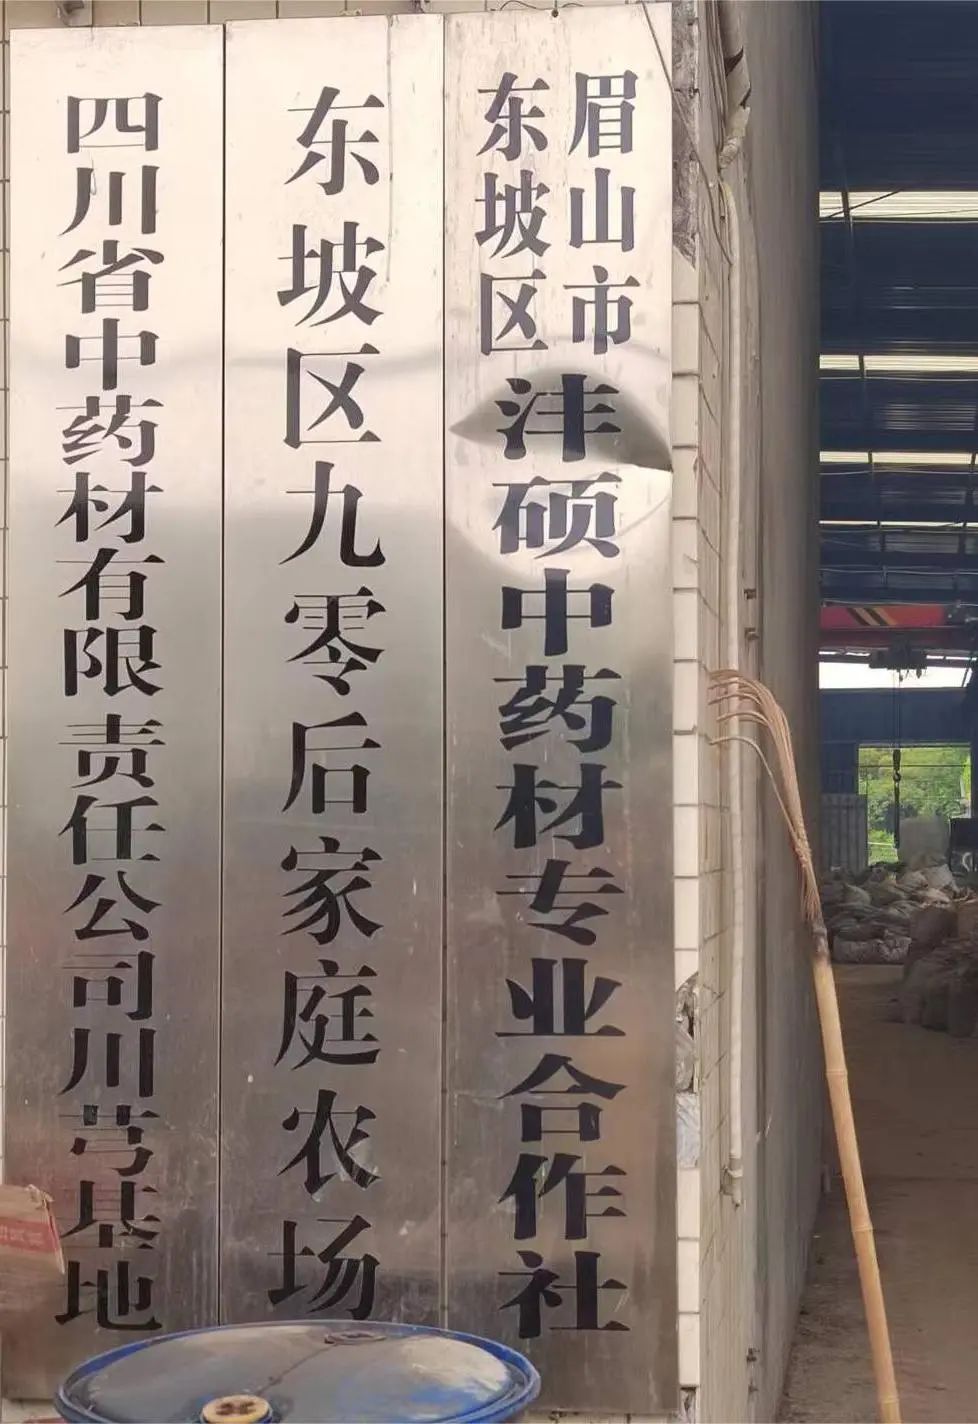 眉山市
东坡区
沣硕中药材专业合作社
东坡区九零后家庭农场
四川省中药材有限责任公司川芎基地